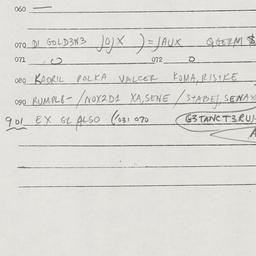 060
070 DI GOLD3N3 JOJX ) = JAUX
071 072
080 KADRIL POLKA VALCER KOMA, RISIKE
090 RUMPL8- /NOX2D1 XA, SENE /STABEJ, SENAX
901 EX GL ALSO (031 070 G3TANCT3RUJ